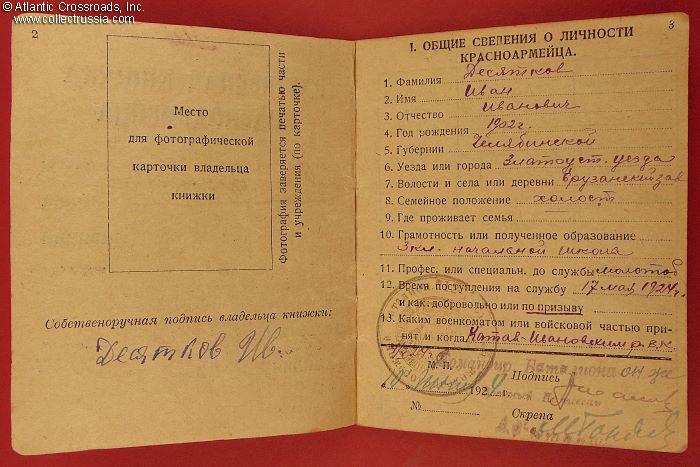 © Atlantic Crossroads, Inc.
www.collectrussia.com
2
Место
для фотографической
карточки владельца
книжки
Фотография заверяется печатью части
и учреждения (по карточке).
Собственноручная подпись владельца книжки:
Десятков Ив.
3
I. ОБЩИЕ СВЕДЕНИЯ О ЛИЧНОСТИ
КРАСНОАРМЕЙЦА.
1. Фамилия Десятков
2. Имя Иван
3. Отчество Иванович
4. Год рождения 1902г.
5. Губернии Челябинской
6. Уезда или города Златоуст. уезда
7. Волости и села или деревни
8. Семейное положение холост
9. Где проживает семья
10. Грамотность или полученное образование
3 кл. начальной школа
11. Профес. или специальн. до службы молотоб
12. Время поступления на службу 17 мая 1924г.
и как: добровольно или по призыву
13. Каким военкоматом или войсковой частью при-
нят и когда Катав-Ивановским р.в.к.
Командир Батальона
М. П.
Подпись
192
№
Скрепа